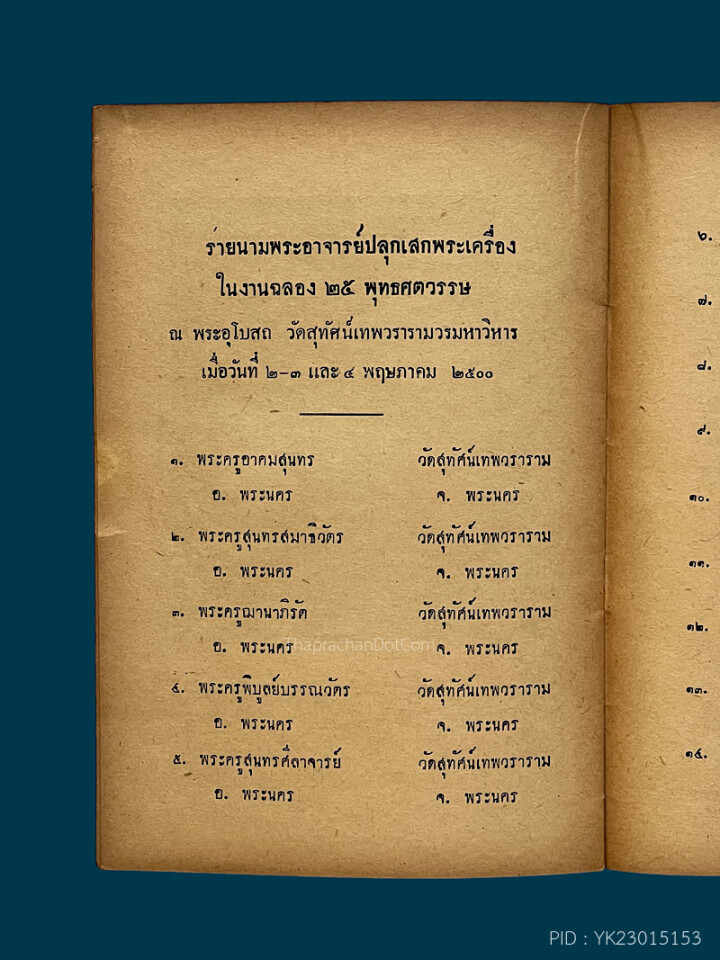 รายนามพระอาจารย์ปลุกเสกพระเครื่อง
ในงานฉลอง ๒๕ พุทธศตวรรษ
ณ พระอุโบสถ วัดสุทัศน์เทพวรารามวรมหาวิหาร
เมื่อวันที่ ๒-๓ และ ๔ พฤษภาคม ๒๕๐๐
๑. พระครูอาคมสุนทร วัดสุทัศน์เทพวราราม
อ. พระนคร จ. พระนคร
๒. พระครูสุนทรสมาธิวัตร วัดสุทัศน์เทพวราราม
อ. พระนคร จ. พระนคร
๓. พระครูฌานาภิรัต วัดสุทัศน์เทพวราราม
อ. พระนคร จ. พระนคร
๔. พระครูพิบูลย์บรรณวัตร วัดสุทัศน์เทพวราราม
อ. พระนคร จ. พระนคร
๕. พระครูสุนทรศีลาจารย์ วัดสุทัศน์เทพวราราม
อ. พระนคร จ. พระนคร
๖.
๗.
๘.
๙.
๑๐.
๑๑.
๑๒.
๑๓.
๑๔.
ThaprachanDotCom
PID : YK23015153